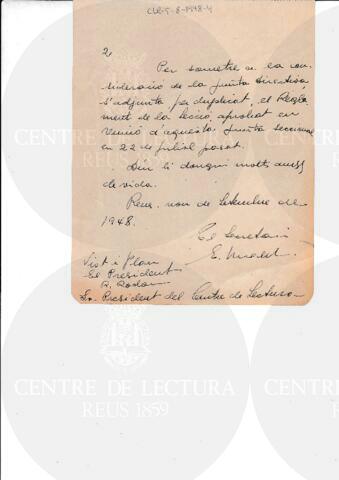 CLR-5-8-1948-4
2
Per sometre a la con-
sideració de la Junta directiva
s'adjunta, per duplicat, el Regla-
ment de la Secció, aprobat en
reunió d'aquesta Junta seccional
en 22 de juliol passat.
Deu li dongui molts anys
de vida.
Reus, nou de Setembre de
1948.
El Secretari
Vist i Plau
El President
Sr. President del Centre de Lectura
CENTRE DE LECTURA
REUS 1859